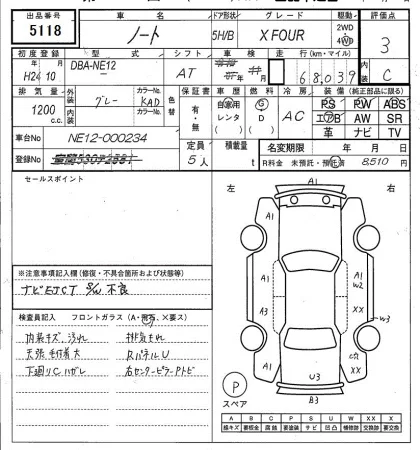 出品番号 車名 ドア形状 グレード 駆動 評価点
5118 ノート 5H/B X FOUR 2WD 4WD 3
初度登録 型式 シフト 車検 走行(km・マイル) 内装
H24年10月 DBA-NE12 AT 68,039 C
排気量 外装 カラーNo. 色替 保証書 車歴 燃料 冷房 装備(純正部品に限る)
1200 c.c. グレー KAD 有・無 自家用 レンタ G D AC PS PW ABS
内装 カラーNo. エアB AW SR
革 ナビ TV
車台No NE12-000234 定員 積載量 名変期限 年 月 日
登録No 5人 t R料金 未預託・預託済 8,510円
セールスポイント
左 右
A1
A1 A1
W2
※注意事項記入欄(修復・不具合箇所および状態等)
ナビETCT S/W 不良
A3 XX W3
検査員記入 フロントガラス(A・飛石、X要ス)
内装キズ、汚れ 排気もれ
天張毛打着大 RパネルU
下廻りCハガレ 右センターピラーPトビ
XX
U3
P
スペア B3
A B C P S U W X XX
線キズ 要板金 腐蝕 要塗装 サビ 凹凸 補修跡 交換跡